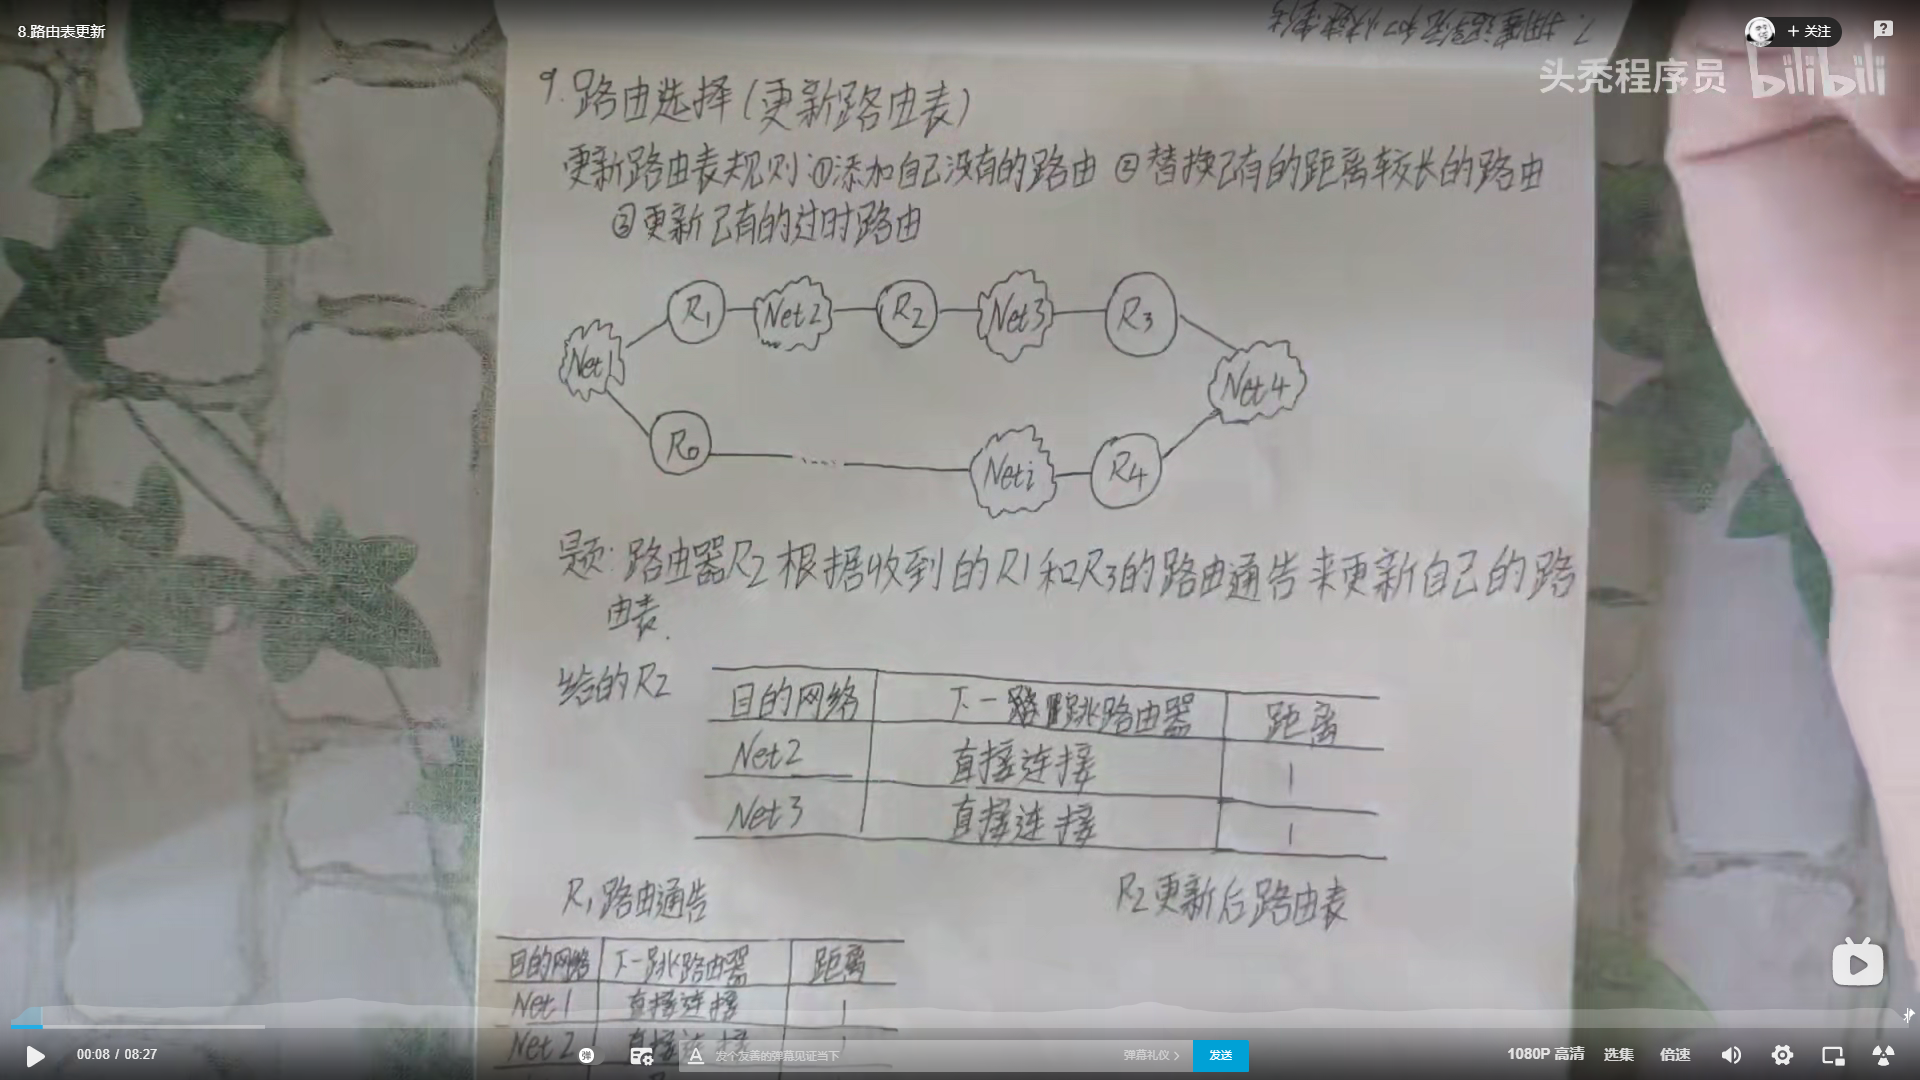 8.路由表更新
+ 关注
头秃程序员 bilibili
9.路由选择(更新路由表)
更新路由表规则:①添加自己没有的路由 ②替换已有的距离较长的路由
③更新已有的过时路由
R1 Net2 R2 Net3 R3
Net1 Net4
R0 Neti R4
题:路由器R2根据收到的R1和R3的路由通告来更新自己的路
由表.
给的R2
目的网络 下一跳路由器 距离
Net2 直接连接 1
Net3 直接连接 1
R1路由通告 R2更新后路由表
目的网络 下一跳路由器 距离
Net1 直接连接 1
Net2 直接连接 1
00:08 / 08:27
弹
发个友善的弹幕见证当下
弹幕礼仪 >
发送
1080P 高清 选集 倍速